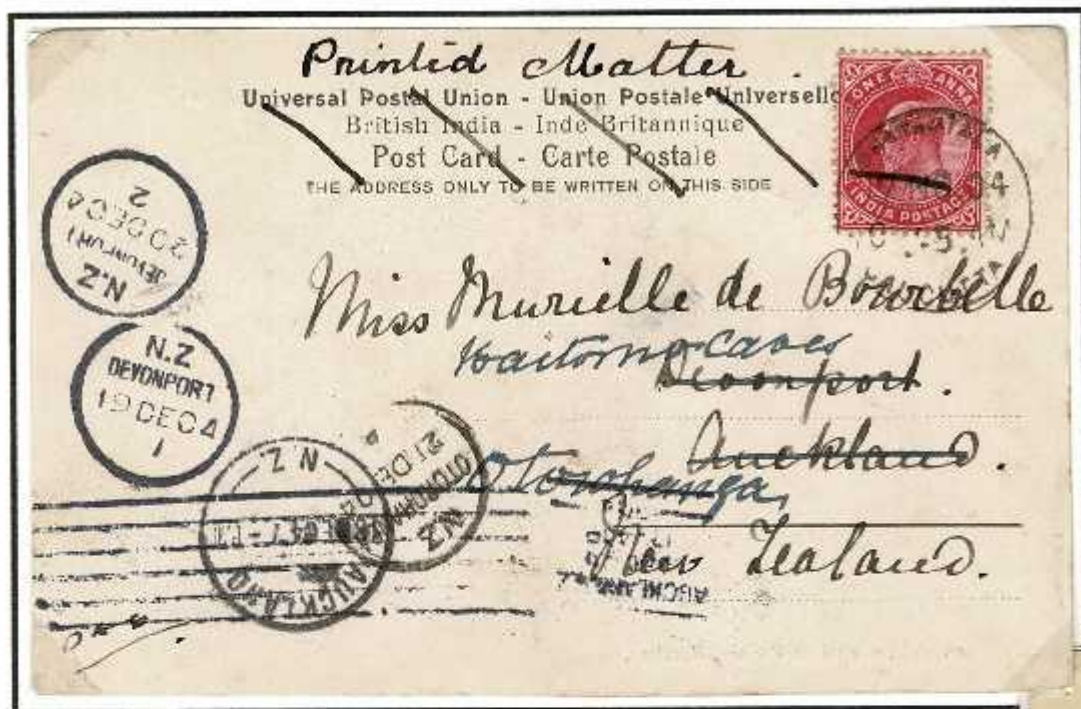 Printed Matter
Universal Postal Union - Union Postale Universelle
British India - Inde Britannique
Post Card - Carte Postale
THE ADDRESS ONLY TO BE WRITTEN ON THIS SIDE
ONE ANNA
INDIA POSTAGE
04
Miss Murielle de Bourbelle
Waitomo Caves
Devonport.
Auckland.
Otorohanga,
New Zealand.
2
20 DEC 04
DEVONPORT
N.Z
N.Z
DEVONPORT
19 DEC 04
1
21 DE
N.Z
N.Z.
AUCKLAND